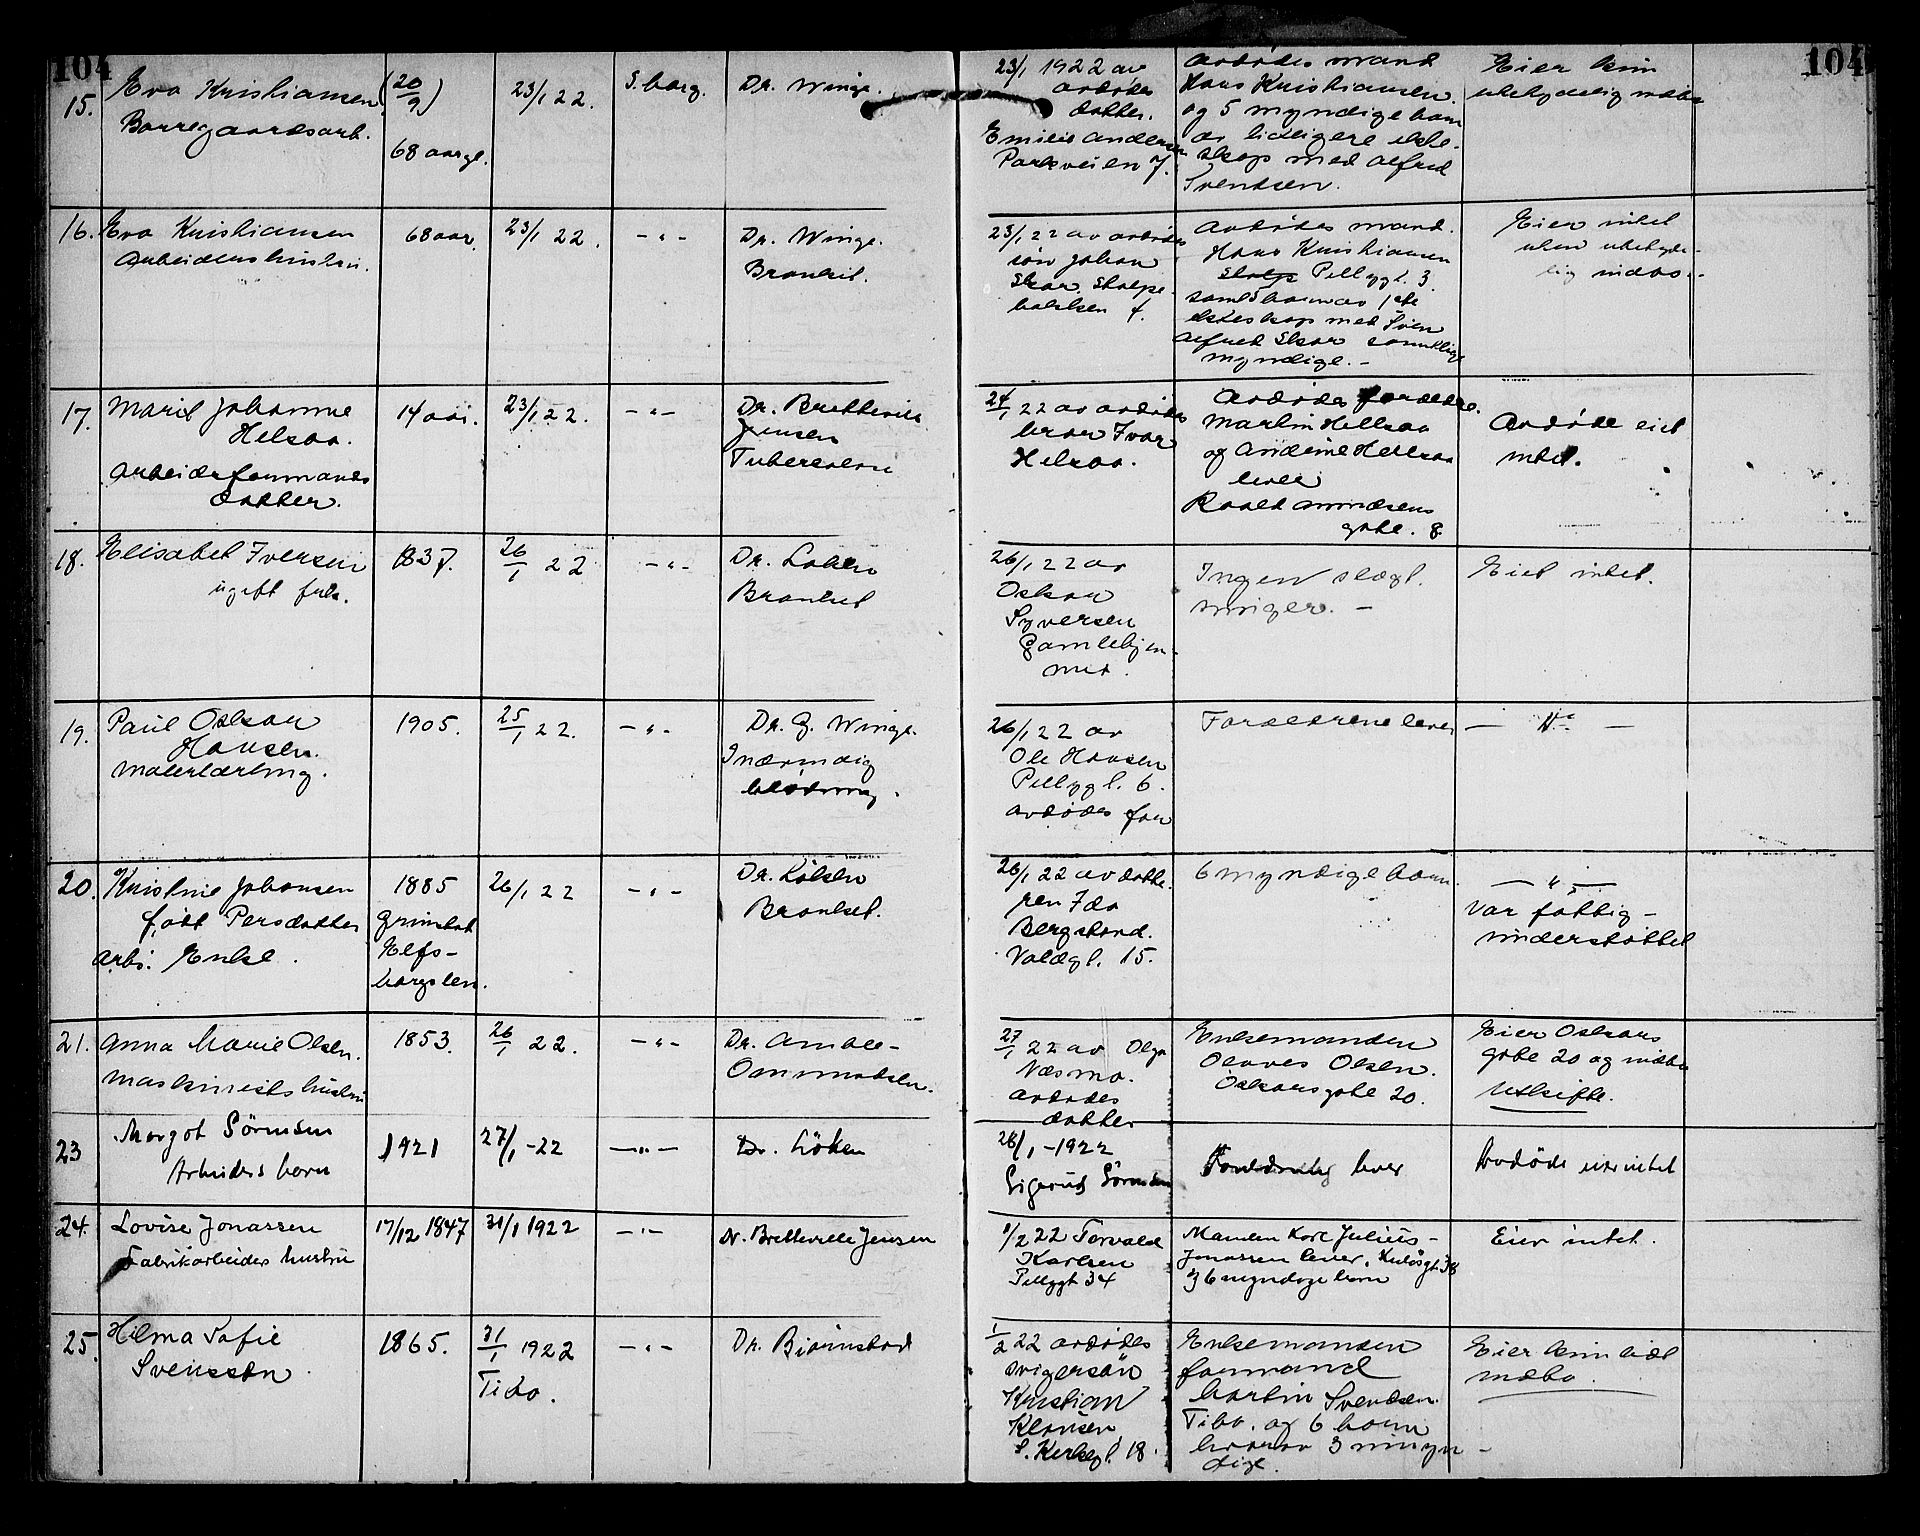 104
104
15.
Eva Kristiansen
Borregaardsarb.
(20/9)
68 aargl.
23/1 22.
S.borg.
Dr. Winge.
23/1 1922 av
avdødes
datter.
Emilie Andersen
Parkveien 7.
Avdødes mand
Hans Kristiansen.
og 5 myndige barn
av tidligere ekte-
skap med Alfred
Svendsen.
Eier kun
ubetydelig indbo
16.
Eva Kristiansen
Arbeiderhustru.
68 aar.
23/1 22.
-"-
Dr. Winge.
Bronkit.
23/1 22 av avdødes
søn Johan
Skar, Stolpe-
bakken 4.
Avdødes mand.
Hans Kristiansen
Skolg Pellygt. 3.
samt 5 barn av 1ste
ekteskap med Sven
Alfred Skar samtlige
myndige. -
Eier intet
uten ubetyde-
lig indbo. -
17.
Marit Johanne
Helsaa.
Arbeidsformands
datter.
14 aar.
23/1 22.
-"-
Dr. Bretteville
Jensen
Tuberculose
24/1 22 av avdødes
bror Ivar
Helsaa.
Avdødes foreldre.
Martin Hellsaa
og Andrine Hellsaa
lever
Roald Amundsens
gate. 8.
Avdøde eiet
intet.
18.
Elisabet Iversen
ugift frk.
1837.
26/1 22
-"-
Dr. Løken
Bronkit
26/1 22 av
Oskar
Syversen
Gamlehjem-
met.
Ingen slægt.
ninger. -
Eiet intet.
19.
Paul Oskar
Hansen.
Malerlærling.
1905.
25/1 22.
-"-
Dr. G. Winge.
Indvendig
blødning.
26/1 22 av
Ole Hansen
Pellygt. 6.
avdødes far
Forældrene lever
- " -
20.
Kristine Johansen
født Persdatter
Arb. Enke.
1885
Grimstad
Elfs-
borgslen.
26/1 22
-"-
Dr. Løken
Bronkit.
26/1 22 av datte-
ren Ida
Bergstrand.
Voldgt. 15.
6 myndige barn.
- " -
Var fattig-
understøttet
21.
Anna Marie Olsen.
Maskinists hustru
1853.
26/1 22.
-"-
Dr. Amble-
Ommundsen.
27/1 22 av Olga
Næsmo.
avdødes
datter
Enkemanden
Olaves Olsen.
Oskarsgate 20.
Eier Oskars
gate 20 og indbo
Utskifte.
23
Margot Sørensen
Arbeiders barn
1921
27/1 -22
-"-
Dr. Löken
28/1 -1922
Sigurd Sørensen
Forældrene lever
Avdøde eier intet
24.
Lovise Jonassen
Fabrikarbeiders hustru
17/12 1847
31/1 1922
-"-
Dr. Bretteville Jensen
1/2 22 Torvald
Karlsen
Pellygt 34
Manden Karl Julius-
Jonassen lever, Kulåsgt 38
og 6 myndige barn
Eier intet.
25.
Hilma Sofie
Svenssen
1865.
31/1 1922
Tibo.
-"-
Dr. Bjørnstad
1/2 22 avdødes
svigersøn
Kristian
Klausen
S. Kirkegt. 18.
Enkemanden
formand
Martin Svendsen
Tibo. og 6 barn
hvorav 3 umyn-
dige.
Eier kun lidt
indbo.